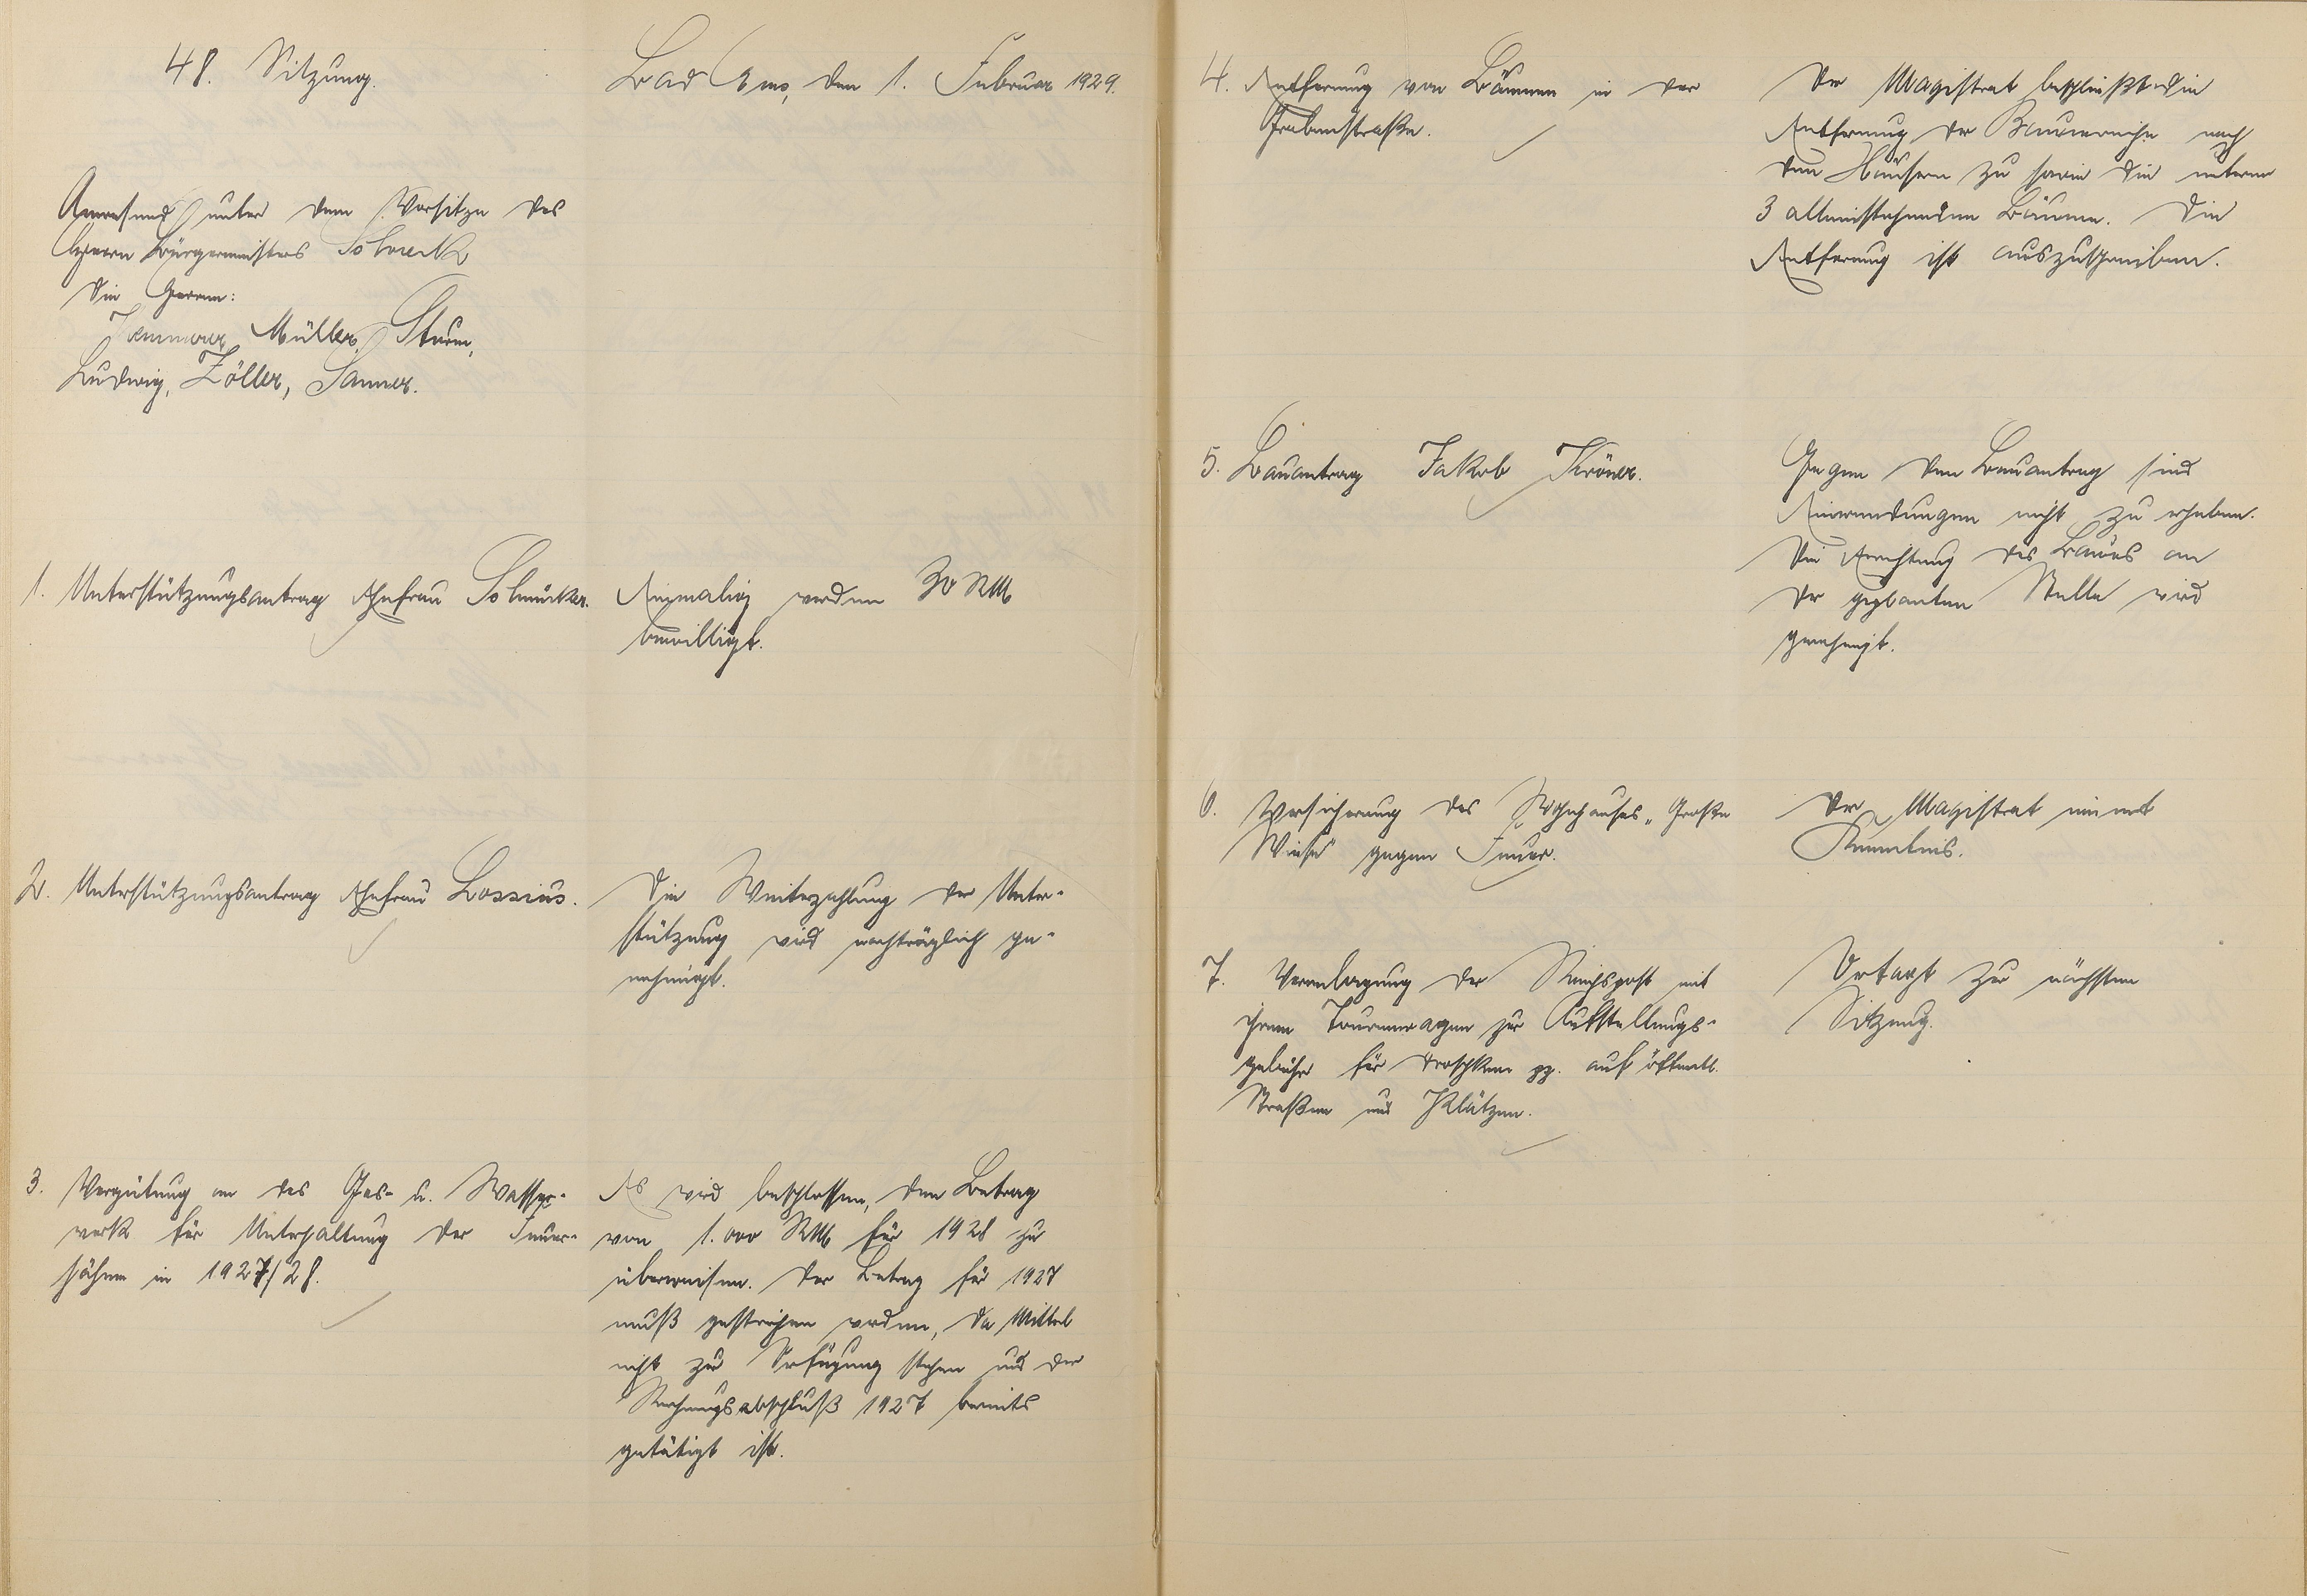 48. Sitzung.
Bad Ems, den 1. Februar 1929.
Anwesend unter dem Vorsitze des
Herrn Bürgermeisters Schreck
die Herren:
Kemmerer, Müller, Sturm,
Ludwig, Zöller, Sanner.
1. Unterstützungsantrag Ehefrau Schmücker.
Einmalig werden 30 RM
bewilligt.
2. Unterstützungsantrag Ehefrau Lossius.
Die Weiterzahlung der Unter-
stützung wird nachträglich ge-
nehmigt.
3. Vergütung an das Gas- u. Wasser-
werk für Unterhaltung der Feuer-
hähne in 1927/28.
Es wird beschlossen, den Betrag
von 1.000 RM für 1928 zu
überweisen. Der Betrag für 1927
muß gestrichen werden, da Mittel
nicht zur Verfügung stehen und der
Rechnungsabschluß 1927 bereits
getätigt ist.
4. Entfernung von Bäumen in der
Grabenstraße.
Der Magistrat beschließt die
Entfernung der Baumreihe nach
den Häusern zu sowie die unteren
3 alleinstehenden Bäume. Die
Entfernung ist auszuschreiben.
5. Bauantrag Jakob Kröner.
Gegen den Bauantrag sind
Einwendungen nicht zu erheben.
Die Errichtung des Baues an
der geplanten Stelle wird
genehmigt.
6. Versicherung des Wohnhauses „Große
Wiese" gegen Feuer.
Der Magistrat nimmt
Kenntnis.
7. Veranlagung der Reichspost mit
ihren Tourenwagen zur Aufstellungs-
gebühr für Droschken pp. auf öffentl.
Straßen und Plätzen.
Vertagt zur nächsten
Sitzung.